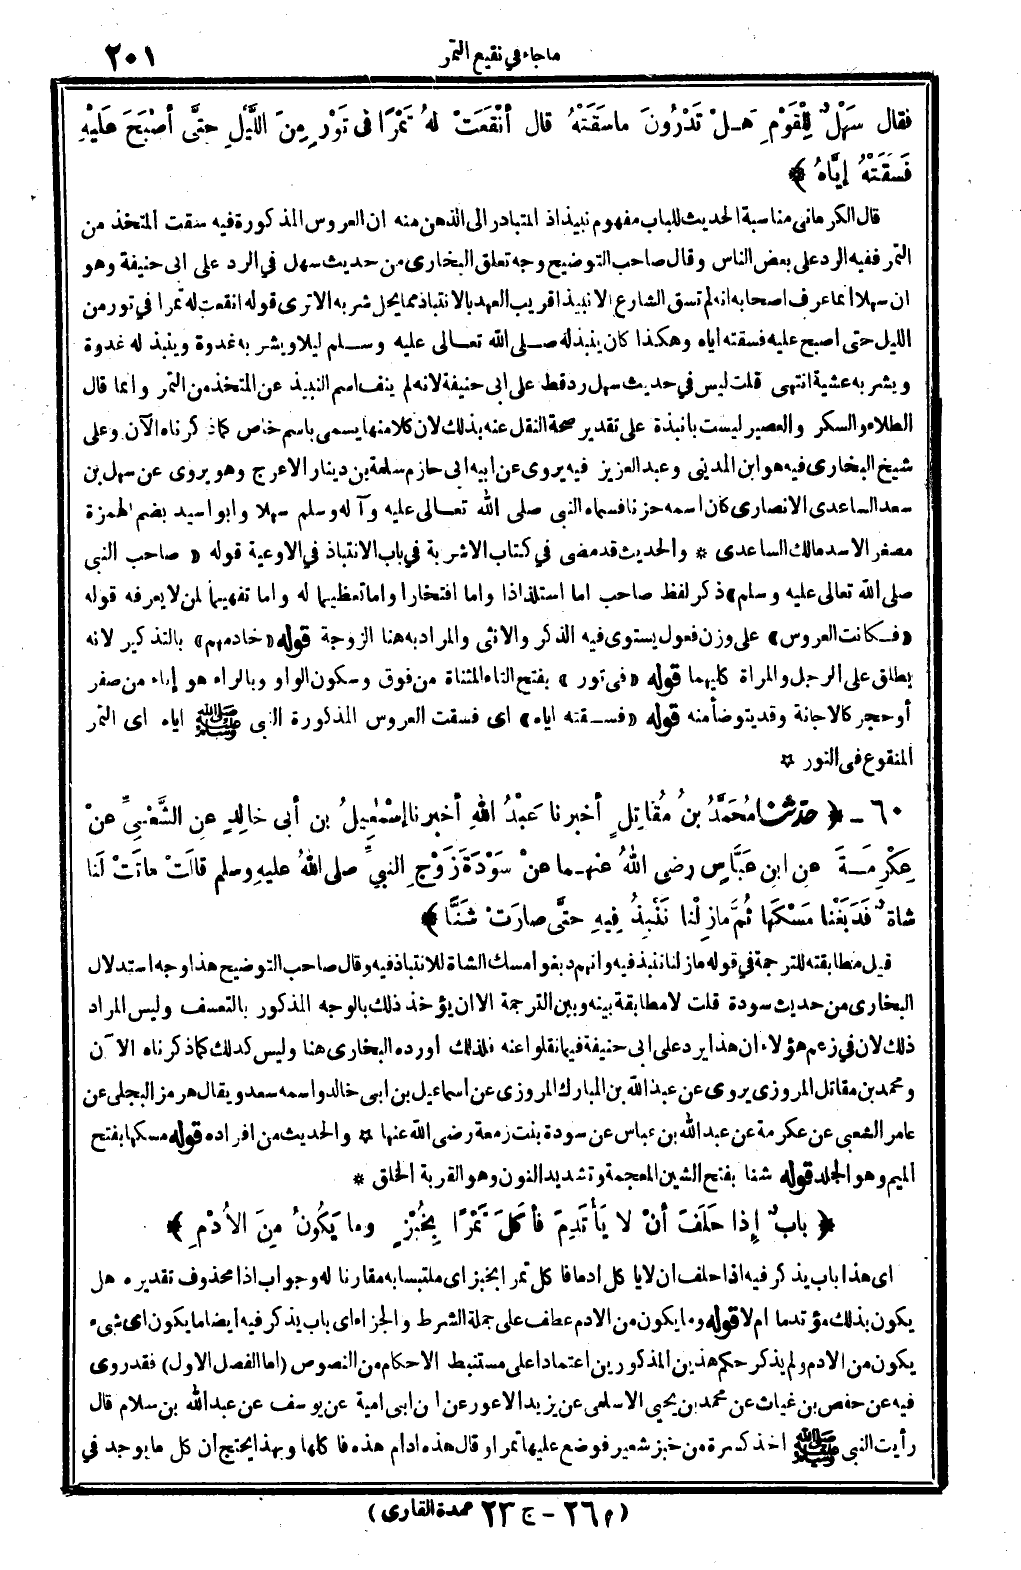 ماجاء في نقيع التمر ٢٠١
فقال سَهْلٌ لِلْقَوْمِ هَلْ تَدْرُونَ ماسَقَتْهُ قال أنْقَعَتْ لهُ تَمْرًا فى تَوْرٍ مِنَ اللَّيْلِ حتَّى أصْبَحَ عَلَيْهِ
فَسَقَتْهُ إيَّاهُ ﴾
قال الكرمانى مناسبة الحديث للباب مفهوم نبيذ اذ المتبادر الى الذهن منه ان العروس المذكورة فيه سقت المتخذ من
التمر ففيه الرد على بعض الناس وقال صاحب التوضيح وجه تعلق البخارى من حديث سهل في الرد على ابى حنيفة وهو
ان سهلا انما عرف اصحابه انه لم تسق الشارع الا نبيذا قريب العهد بالانتباذ مما يحل شربه الا ترى قوله انقعت له تمرا في تور من
الليل حتى اصبح عليه فسقته اياه وهكذا كان ينبذ له صلى الله تعالى عليه وسلم ليلا ويشربه غدوة وينبذ له غدوة
ويشربه عشية انتهى قلت ليس في حديث سهل رد قط على ابى حنيفة لانه لم ينف اسم النبيذ عن المتخذ من التمر وانما قال
الطلاء والسكر والعصير ليست بانبذة على تقدير صحة النقل عنه بذلك لان كلا منها يسمى باسم خاص كما ذكرناه الآن وعلى
شيخ البخارى فيه هو ابن المدينى وعبد العزيز فيه يروى عن ابيه ابى حازم سلمة بن دينار الاعرج وهو يروى عن سهل بن
سعد الساعدى الانصارى كان اسمه حزنا فسماه النبى صلى الله تعالى عليه وآله وسلم سهلا وابو اسيد بضم الهمزة
مصغر الاسد مالك الساعدى * والحديث قد مضى في كتاب الاشربة في باب الانتباذ في الاوعية قوله « صاحب النبى
صلى الله تعالى عليه وسلم» ذكر لفظ صاحب اما استلذاذا واما افتخارا واما تعظيما له واما تفهيما لمن لا يعرفه قوله
«فكانت العروس» على وزن فعول يستوى فيه الذكر والانثى والمراد به هنا الزوجة قوله «خادمهم» بالتذكير لانه
يطلق على الرجل والمرأة كليهما قوله «فى تور» بفتح التاء المثناة من فوق وسكون الواو وبالراء هو إناء من صفر
أو حجر كالاجانة وقد يتوضأ منه قوله «فسقته اياه» اى فسقت العروس المذكورة النبى ﷺ اياه اى التمر
المنقوع فى التور *
٦٠ـ ﴿ حدثنا مُحَمَّدُ بنُ مُقاتِلٍ أخبرنا عَبْدُ اللهِ أخبرنا إسْمٰعِيلُ بن أبى خالِدٍ عنِ الشَّعْبِيِّ عنْ
عِكْرِمَةَ عنِ ابنِ عَبَّاسٍ رضى اللهُ عنهما عنْ سَوْدَةَ زَوْجِ النبيِّ صلى اللهُ عليهِ وسلم قالَتْ ماتَتْ لَنا
شاةٌ فَدَبَغْنا مَسْكَها ثُمَّ مازِلْنا نَنْبِذُ فِيهِ حتَّى صارَتْ شَنًّا ﴾
قيل مطابقته للترجمة في قوله ما زلنا ننبذ فيه وانهم دبغوا مسك الشاة للانتباذ فيه وقال صاحب التوضيح هذا وجه استدلال
البخارى من حديث سودة قلت لا مطابقة بينه وبين الترجمة الا ان يؤخذ ذلك بالوجه المذكور بالتعسف وليس المراد
ذلك لان في زعم هؤلاء ان هذا يرد على ابى حنيفة فيما نقلوا عنه فلذلك اورده البخارى هنا وليس كذلك كما ذكرناه الآن
ومحمد بن مقاتل المروزى يروى عن عبد الله بن المبارك المروزى عن اسماعيل بن ابى خالد واسمه سعد ويقال هرمز البجلى عن
عامر الشعبى عن عكرمة عن عبد الله بن عباس عن سودة بنت زمعة رضى الله عنها * والحديث من افراده قوله مسكها بفتح
الميم وهو الجلد قوله شنا بفتح الشين المعجمة وتشديد النون وهو القربة الخلق *
﴿ بابٌ إذا حَلَفَ أنْ لا يَأْتَدِمَ فأكَلَ تَمْرًا بِخُبْزٍ وما يَكُونُ مِنَ الأُدْمِ ﴾
اى هذا باب يذكر فيه اذا حلف ان لا يأكل ادما فأكل تمرا بخبز اى ملتبسا به مقارنا له وجواب اذا محذوف تقديره هل
يكون بذلك مؤتدما ام لا قوله وما يكون من الادم عطف على جملة الشرط والجزاء اى باب يذكر فيه ايضا ما يكون اى شىء
يكون من الادم ولم يذكر حكم هذين المذكورين اعتمادا على مستنبط الاحكام من النصوص (اما الفصل الاول) فقد روى
فيه عن حفص بن غياث عن محمد بن يحيى الاسلمى عن يزيد الاعور عن ابن ابى امية عن يوسف عن عبد الله بن سلام قال
رأيت النبى ﷺ اخذ كسرة من خبز شعير فوضع عليها تمرا وقال هذه ادام هذه فأكلها وبهذا يحتج ان كل ما يوجد في
(م ٢٦ - ج ٢٣ عمدة القارى)